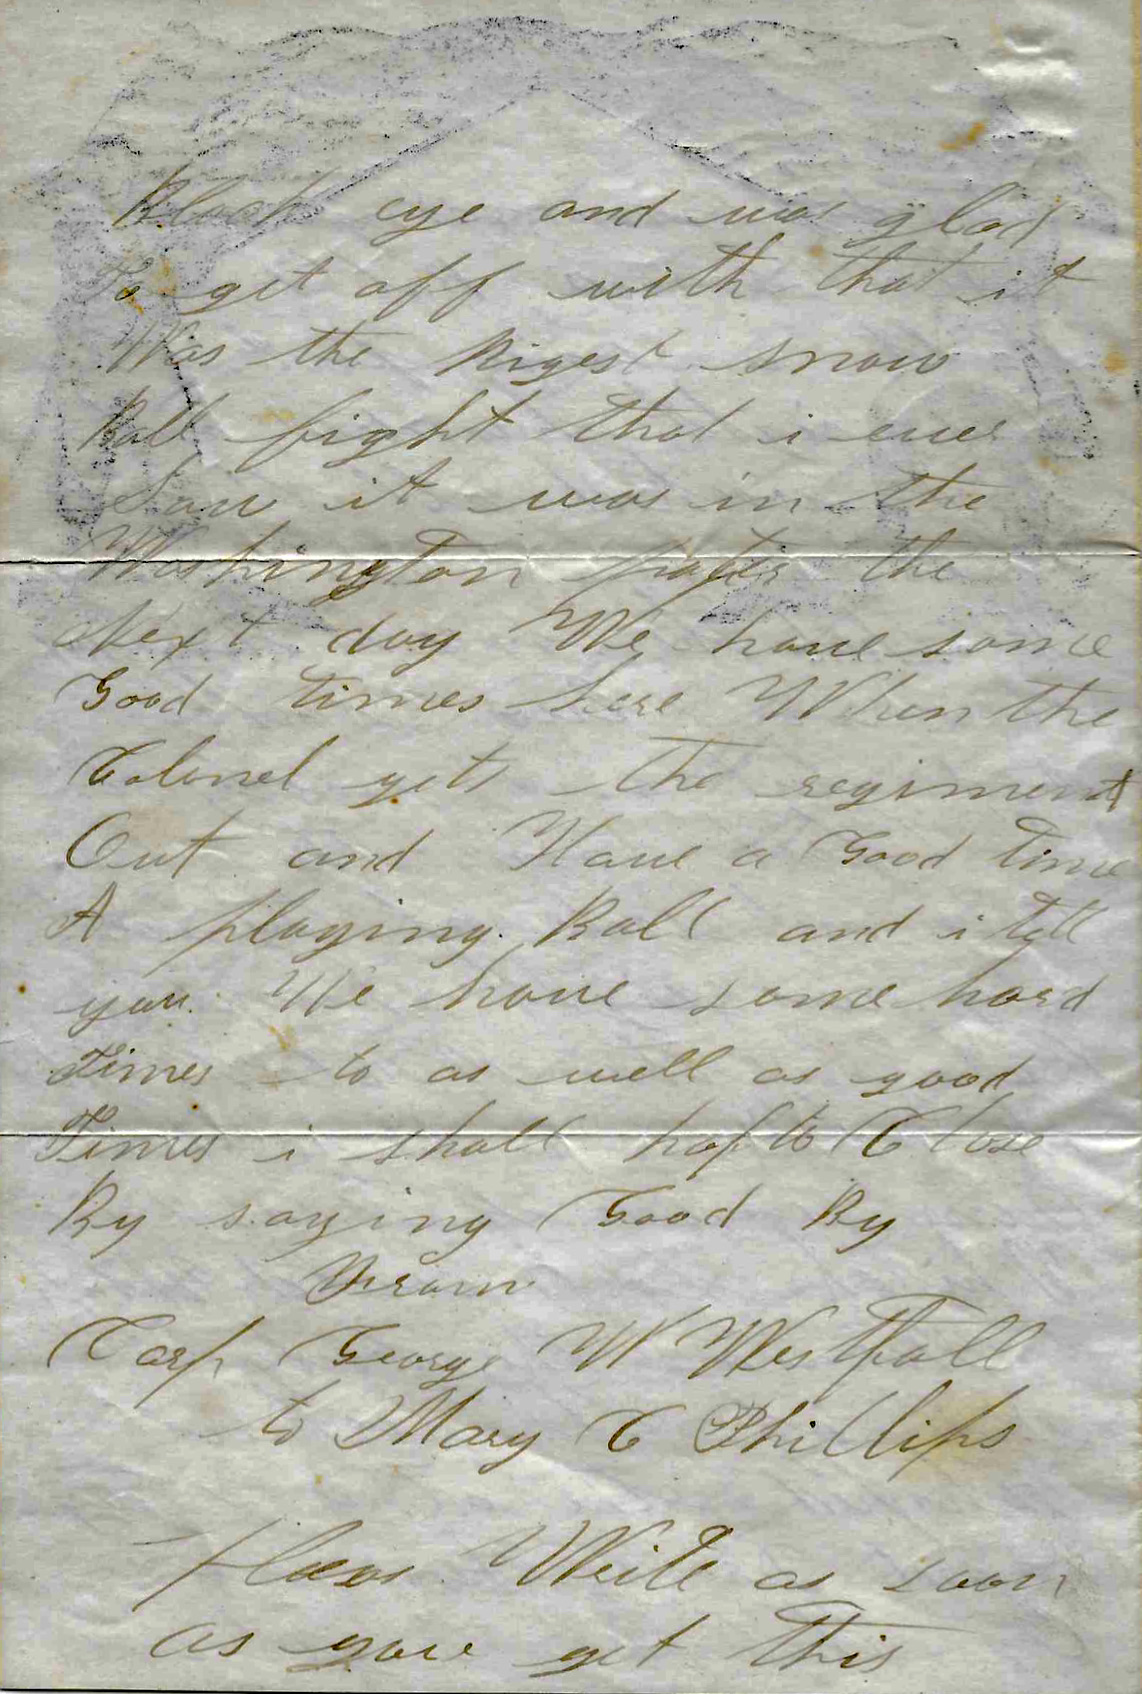 Black eye and was glad
To get off with that it
Was the Bigest snow
Ball fight that i ever
Saw it was in the
Washington the
Next day We have some
Good times here When the
Colonel gets the regiment
Out and Have a Good time
A playing Ball and i tell
you We have some hard
Times to as well as good
Times i shall haf to Close
By saying Good By
From
Corp George W Westfall
to Mary C Phillips
Pleas Write as soon
as you get this